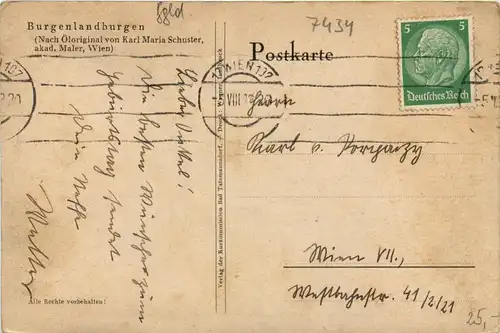 bgld
7434
Burgenlandburgen
(Nach Öloriginal von Karl Maria Schuster,
akad. Maler, Wien)
Postkarte
5 5
Deutsches Reich
WIEN
VIII
Lieber Onkel!
Die besten Wünsche zum
Geburtstag sendet
Dein Neffe
Walter
Verlag der Kurkommission Bad Tatzmannsdorf. / Druck
Herrn
Karl v.
Wien VII.,
Westbahnstr. 41/2/21
Alle Rechte vorbehalten!
25,-